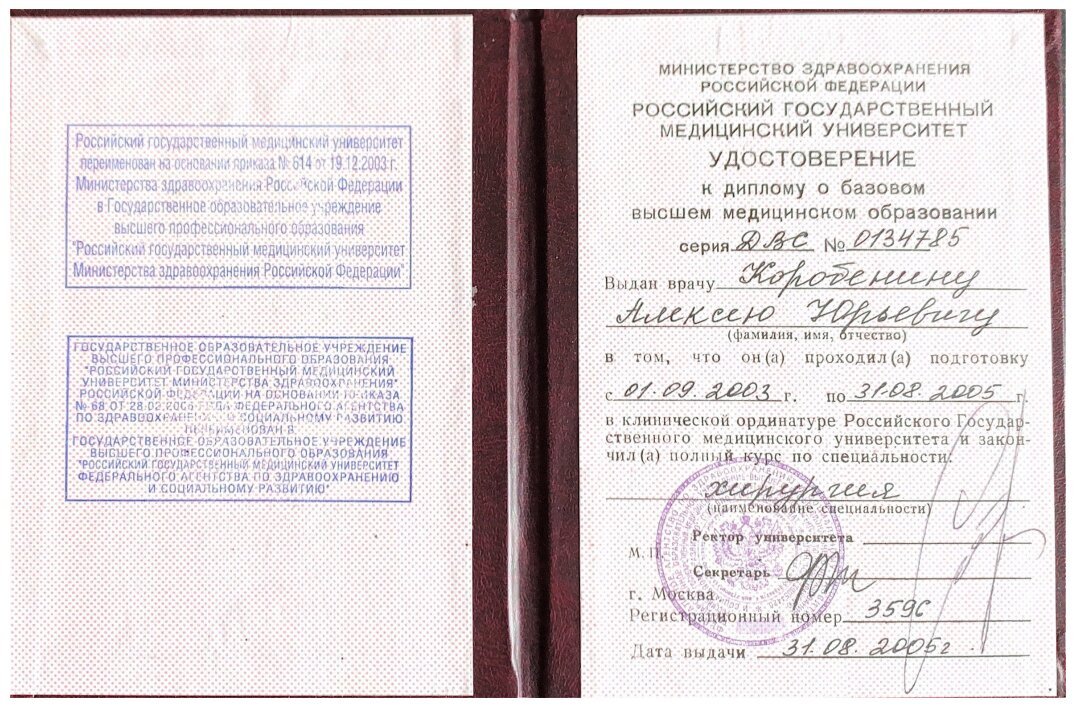 Российский государственный медицинский университет
переименован на основании приказа № 614 от 19.12.2003 г.
Министерства здравоохранения Российской Федерации
в Государственное образовательное учреждение
высшего профессионального образования
"Российский государственный медицинский университет
Министерства здравоохранения Российской Федерации"
ГОСУДАРСТВЕННОЕ ОБРАЗОВАТЕЛЬНОЕ УЧРЕЖДЕНИЕ
ВЫСШЕГО ПРОФЕССИОНАЛЬНОГО ОБРАЗОВАНИЯ
"РОССИЙСКИЙ ГОСУДАРСТВЕННЫЙ МЕДИЦИНСКИЙ
УНИВЕРСИТЕТ МИНИСТЕРСТВА ЗДРАВООХРАНЕНИЯ"
РОССИЙСКОЙ ФЕДЕРАЦИИ НА ОСНОВАНИИ ПРИКАЗА
№ 68 ОТ 28.02.2005 ГОДА ФЕДЕРАЛЬНОГО АГЕНТСТВА
ПО ЗДРАВООХРАНЕНИЮ И СОЦИАЛЬНОМУ РАЗВИТИЮ
ПЕРЕИМЕНОВАН В
ГОСУДАРСТВЕННОЕ ОБРАЗОВАТЕЛЬНОЕ УЧРЕЖДЕНИЕ
ВЫСШЕГО ПРОФЕССИОНАЛЬНОГО ОБРАЗОВАНИЯ
"РОССИЙСКИЙ ГОСУДАРСТВЕННЫЙ МЕДИЦИНСКИЙ УНИВЕРСИТЕТ
ФЕДЕРАЛЬНОГО АГЕНТСТВА ПО ЗДРАВООХРАНЕНИЮ
И СОЦИАЛЬНОМУ РАЗВИТИЮ"
МИНИСТЕРСТВО ЗДРАВООХРАНЕНИЯ
РОССИЙСКОЙ ФЕДЕРАЦИИ
РОССИЙСКИЙ ГОСУДАРСТВЕННЫЙ
МЕДИЦИНСКИЙ УНИВЕРСИТЕТ
УДОСТОВЕРЕНИЕ
к диплому о базовом
высшем медицинском образовании
серия ДВС № 0134785
Выдан врачу Коробенину
Алексею Юрьевичу
(фамилия, имя, отчество)
в том, что он(а) проходил(а) подготовку
с 01.09.2003 г. по 31.08.2005 г.
в клинической ординатуре Российского Государ-
ственного медицинского университета и закон-
чил(а) полный курс по специальности:
хирургия
(наименование специальности)
Ректор университета
М. П.
Секретарь
г. Москва
Регистрационный номер 3596
Дата выдачи 31.08.2005г